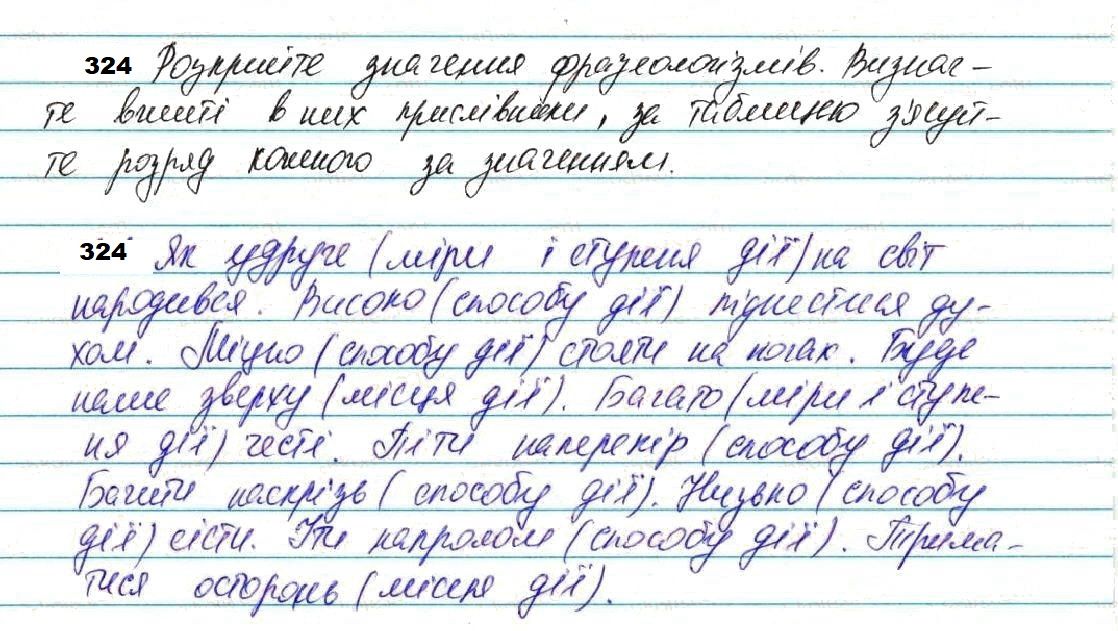 324 Розкрийте значення фразеологізмів. Визнач-
те вжиті в них прислівники, за таблицею з'ясуй-
те розряд кожного за значенням.
324 Як удруге (міри і ступеня дії) на світ
народився. Високо (способу дії) піднестися ду-
хом. Міцно (способу дії) стояти на ногах. Буде
наше зверху (місця дії). Багато (міри і ступе-
ня дії) честі. Піти наперекір (способу дії).
Бачити наскрізь (способу дії). Низько (способу
дії) сісти. Іти напролом (способу дії). Трима-
тися осторонь (місця дії).